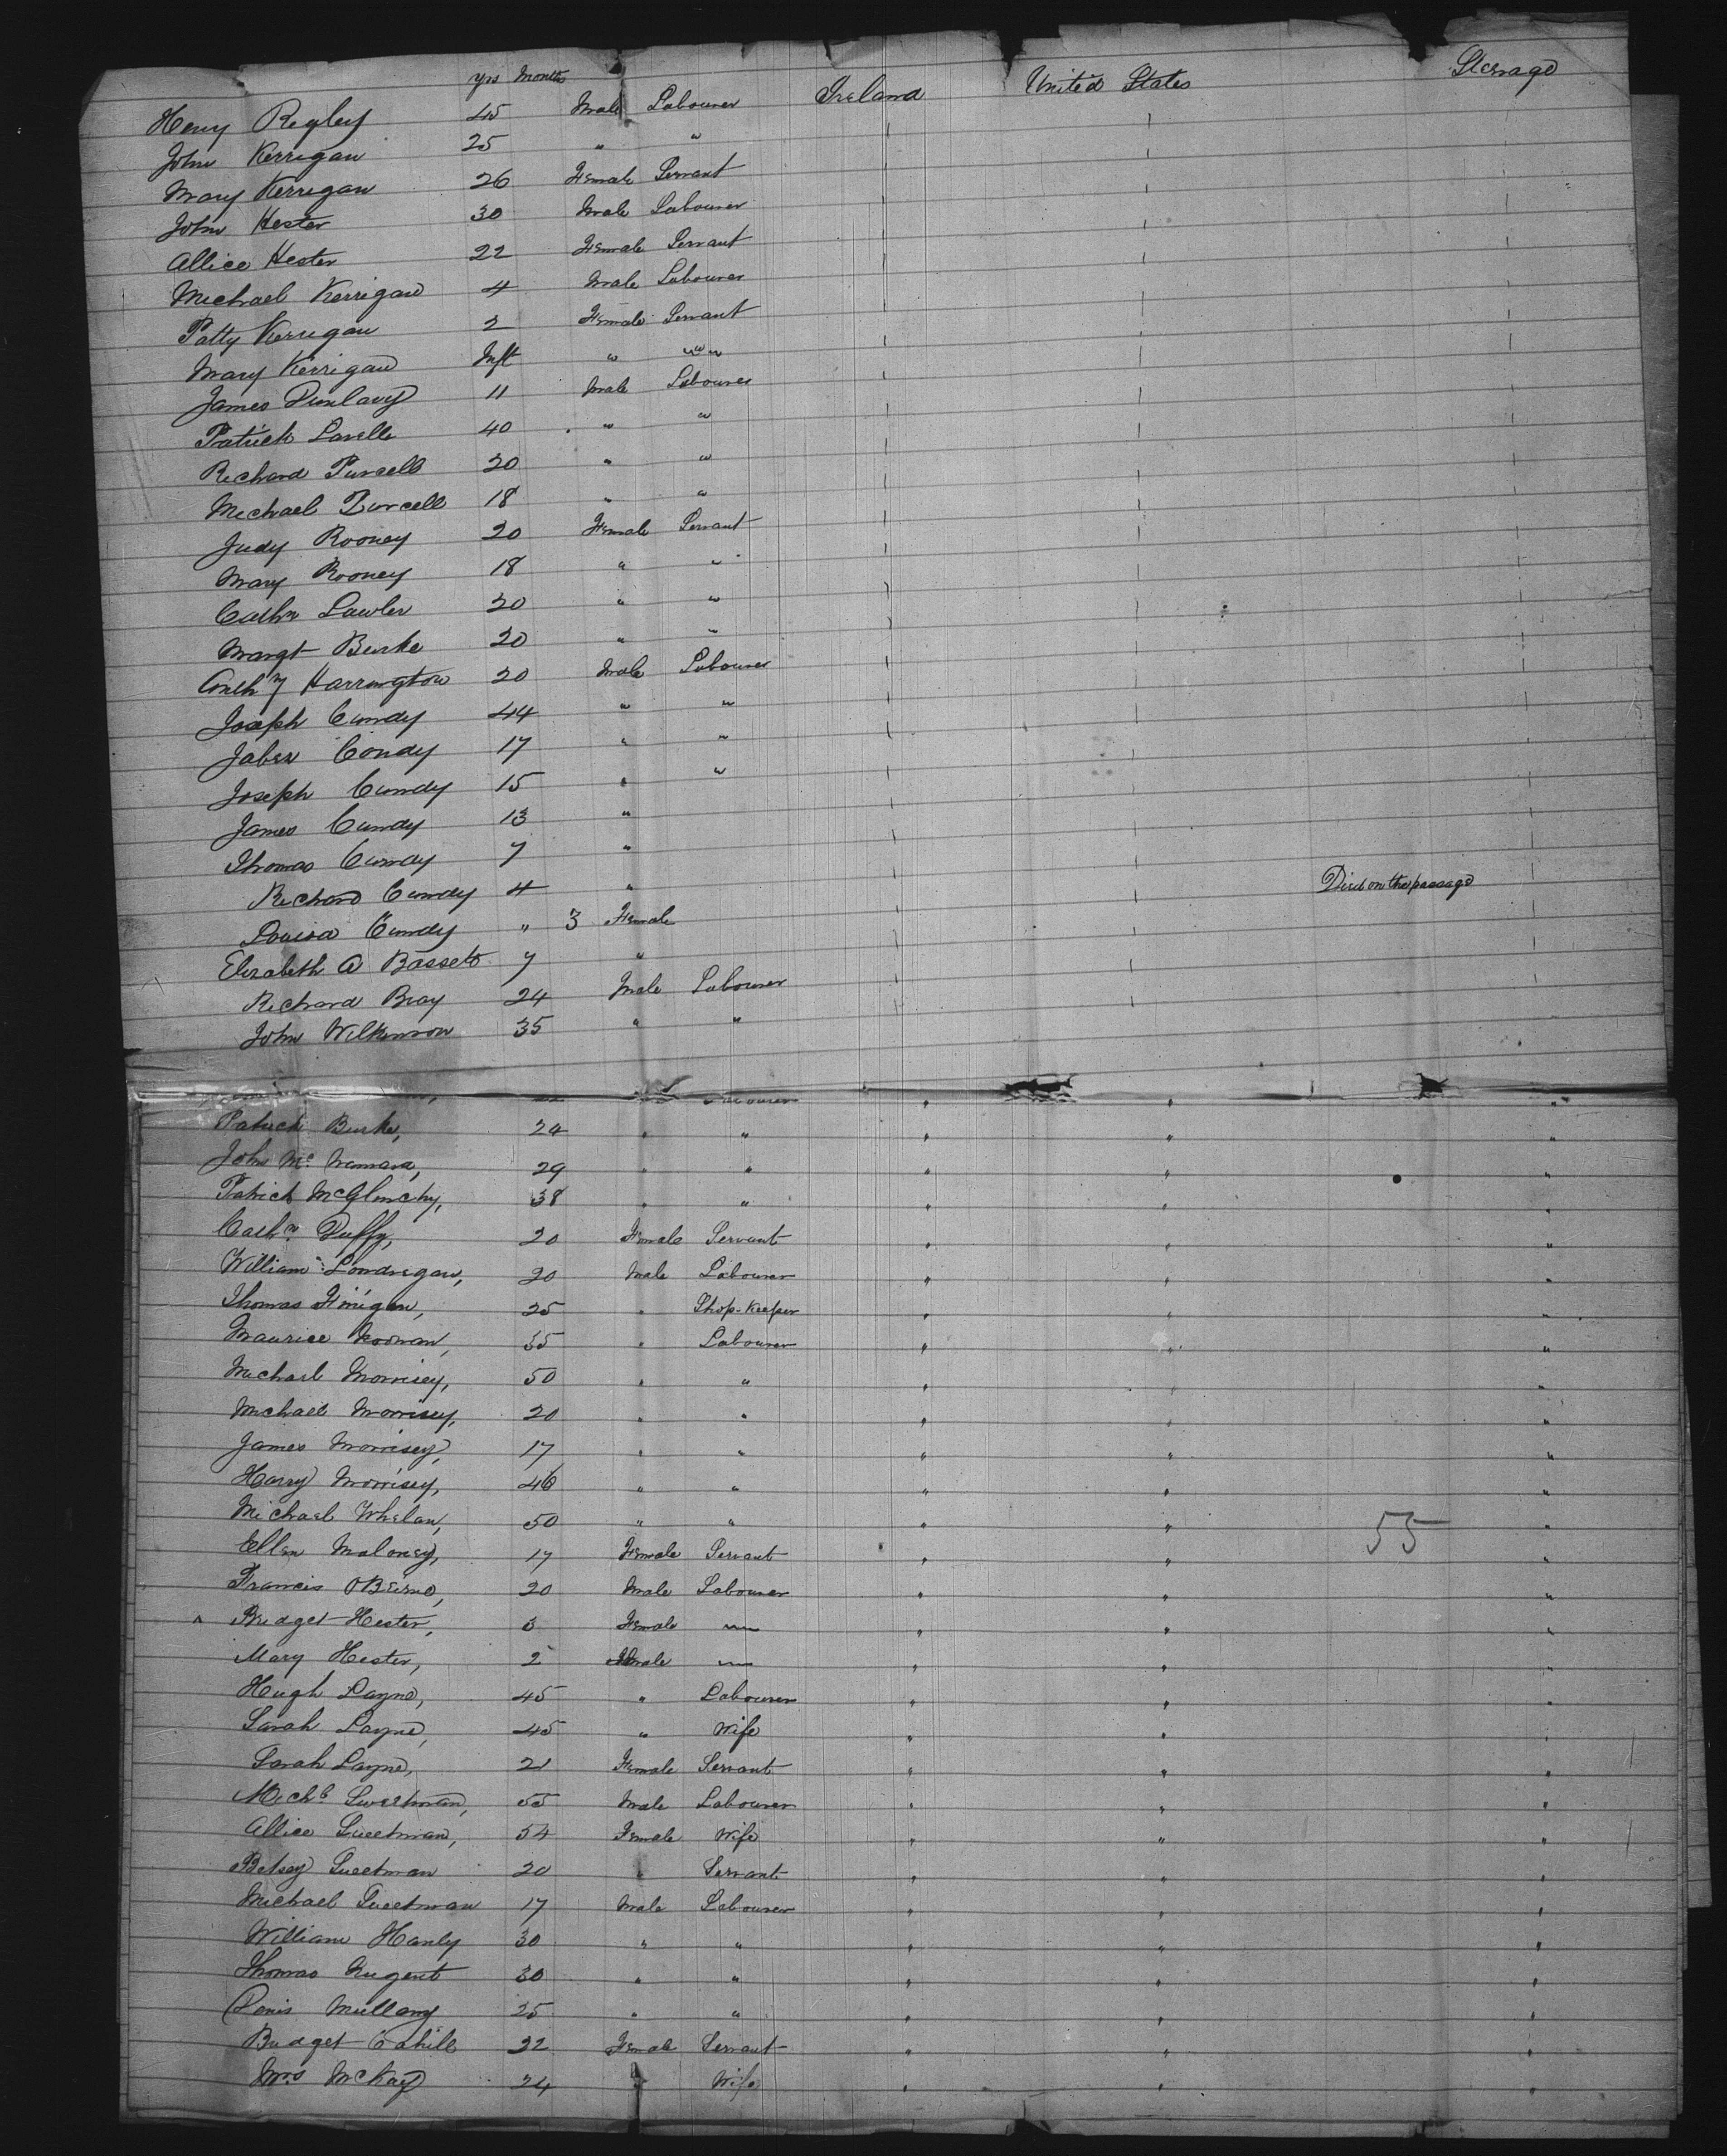 yrs Months
Henry Regley 45 Male Labourer Ireland United States Sterage
John Kerrigan 25 " "
Mary Kerrigan 26 Female Servant
John Hester 30 Male Labourer
Allice Hester 22 Female Servant
Michael Kerrigan 4 Male Labourer
Patty Kerrigan 2 Female Servant
Mary Kerrigan Inft " "
James Dunlavy 11 Male Labourer
Patrick Lavelle 40 " "
Richard Purcell 20 " "
Michael Purcell 18 " "
Judy Rooney 20 Female Servant
Mary Rooney 18 " "
Cathn Lawler 30 " "
Margt Burke 20 " "
Anthny Harrington 20 Male Labourer
Joseph Cundy 44 " "
Jabez Condy 17 " "
Joseph Cundy 15 " "
James Cundy 13 "
Thomas Cundy 7 "
Richard Cundy 4 "
Louisa Cundy " 3 Female Died on the passage
Elizabeth A Bassett 7 "
Richard Bray 24 Male Labourer
John Wilkinson 35 " "
Labourer " " "
Patrick Burke, 24 " " " " "
John McNamara, 29 " " " " "
Patrick McGlinchy, 38 " " " " "
Cathn Duffy, 20 Female Servant " " "
William Londregan, 20 Male Labourer " " "
Thomas Finigan, 25 " Shop-Keeper " " "
Maurice Noonan, 35 " Labourer " " "
Michael Morrisey, 50 " " " " "
Michael Morrisey, 20 " " " " "
James Morrisey, 17 " " " " "
Harry Morrisey, 46 " " " " "
Michael Whelan, 50 " " " " 55 "
Ellen Maloney, 17 Female Servant " " "
Francis OBeirne, 20 Male Labourer " " "
Bridget Hester, 3 Female " " "
Mary Hester, 2 Male " " "
Hugh Layne, 45 " Labourer " " "
Sarah Layne, 45 " Wife " " "
Sarah Layne, 21 Female Servant " " "
Michl Sweetman, 55 Male Labourer " " "
Allice Sweetman, 54 Female Wife " " "
Betsey Sweetman 20 " Servant " " "
Michael Sweetman 17 Male Labourer " " "
William Hanly 30 " " " " "
Thomas Nugent 30 " " " " "
Denis Mullany 25 " " " " "
Bridget Cahill 22 Female Servant " " "
Mrs McKay 24 " Wife " " "